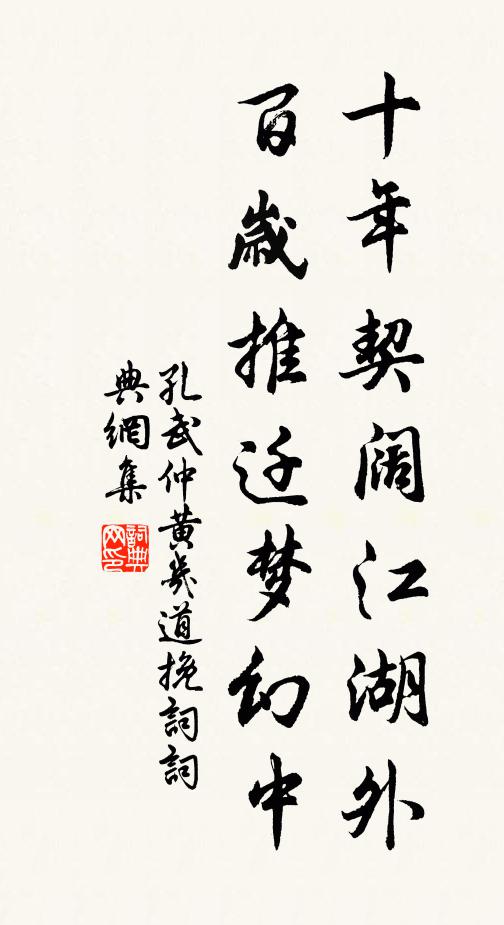 十年契阔江湖外
百歳推迁梦幻中
孔武仲黄幾道挽詞詞
典網集
詞典
网印